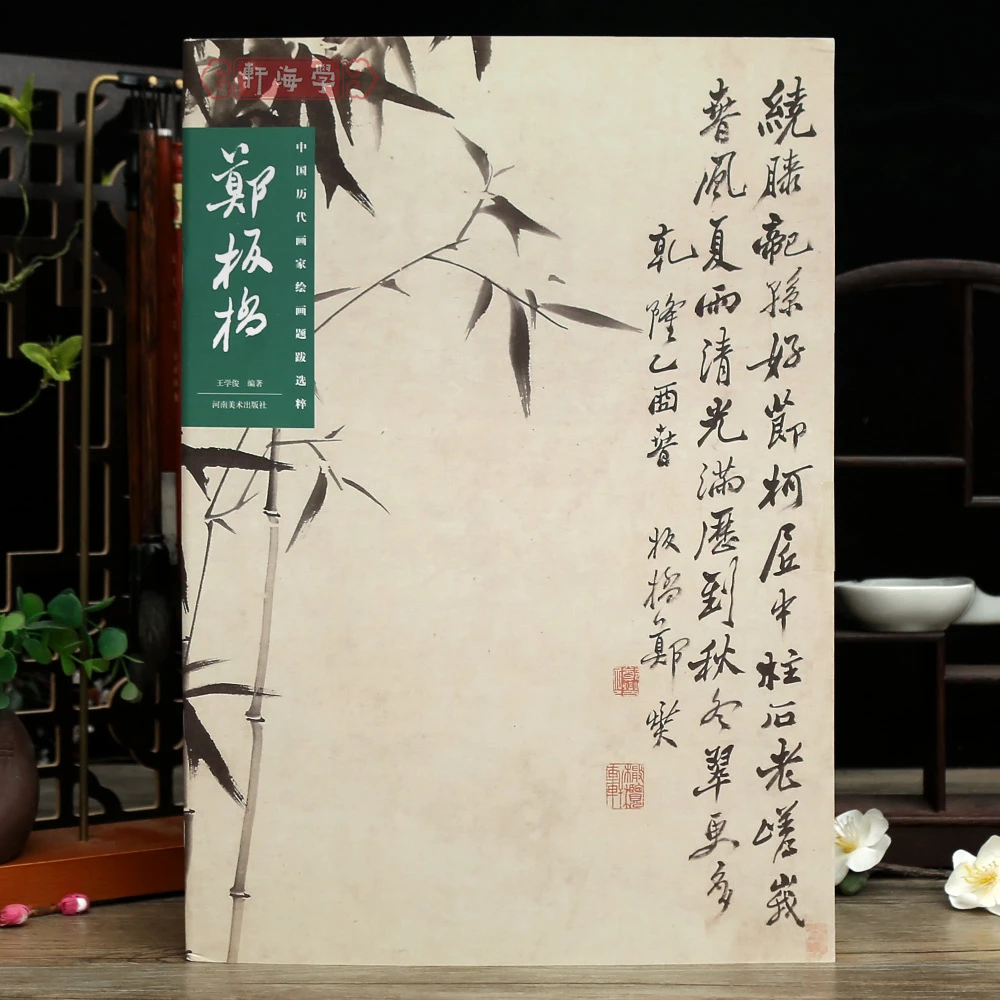 學海軒
鄭板橋
中国历代画家绘画题跋选粹
王学俊 编著
河南美术出版社
繞膝龍孫好節柯居中柱石老嵯峨
春風夏雨清光滿歷到秋冬翠更多
乾隆乙酉春 板橋鄭燮